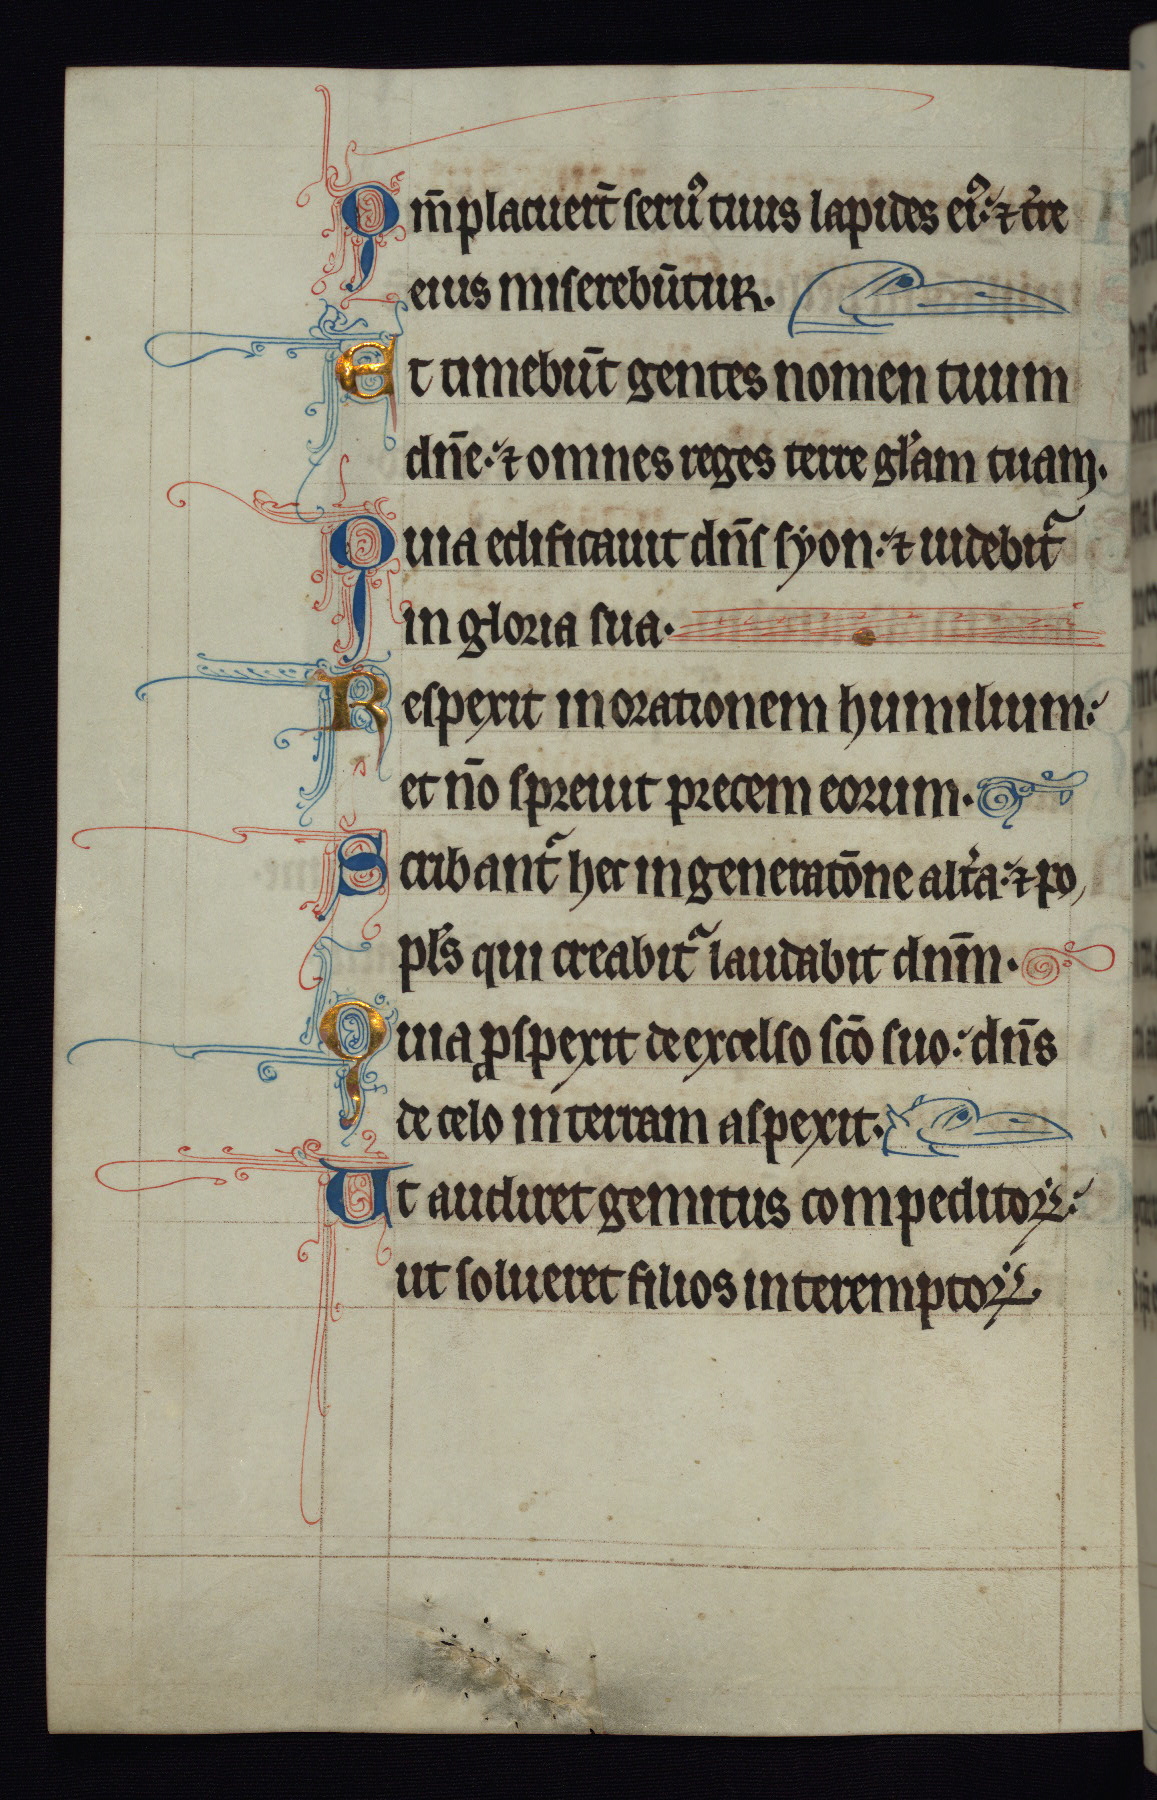 Qm̄ placuer̄t seruꝰ tuus lapides eiꝰ: ⁊ t̾re
eius miserebūtur.
Et timebūt gentes nomen tuum
dn̄e: ⁊ omnes reges terre gl̾am tuam.
Quia edificauit dn̄s syon: ⁊ uidebit᷑
in gloria sua.
Respexit in orationem humilium:
et nō spreuit precem eorum.
Scribant᷑ hec in generatōne alt̾a: ⁊ po
pl̾s qui creabit᷑ laudabit dnm̄.
Quia ꝓspexit de excelso scō suo: dn̄s
de celo in terram aspexit.
Ut audiret gemitus compeditoꝝ:
ut solueret filios interemptoꝝ.